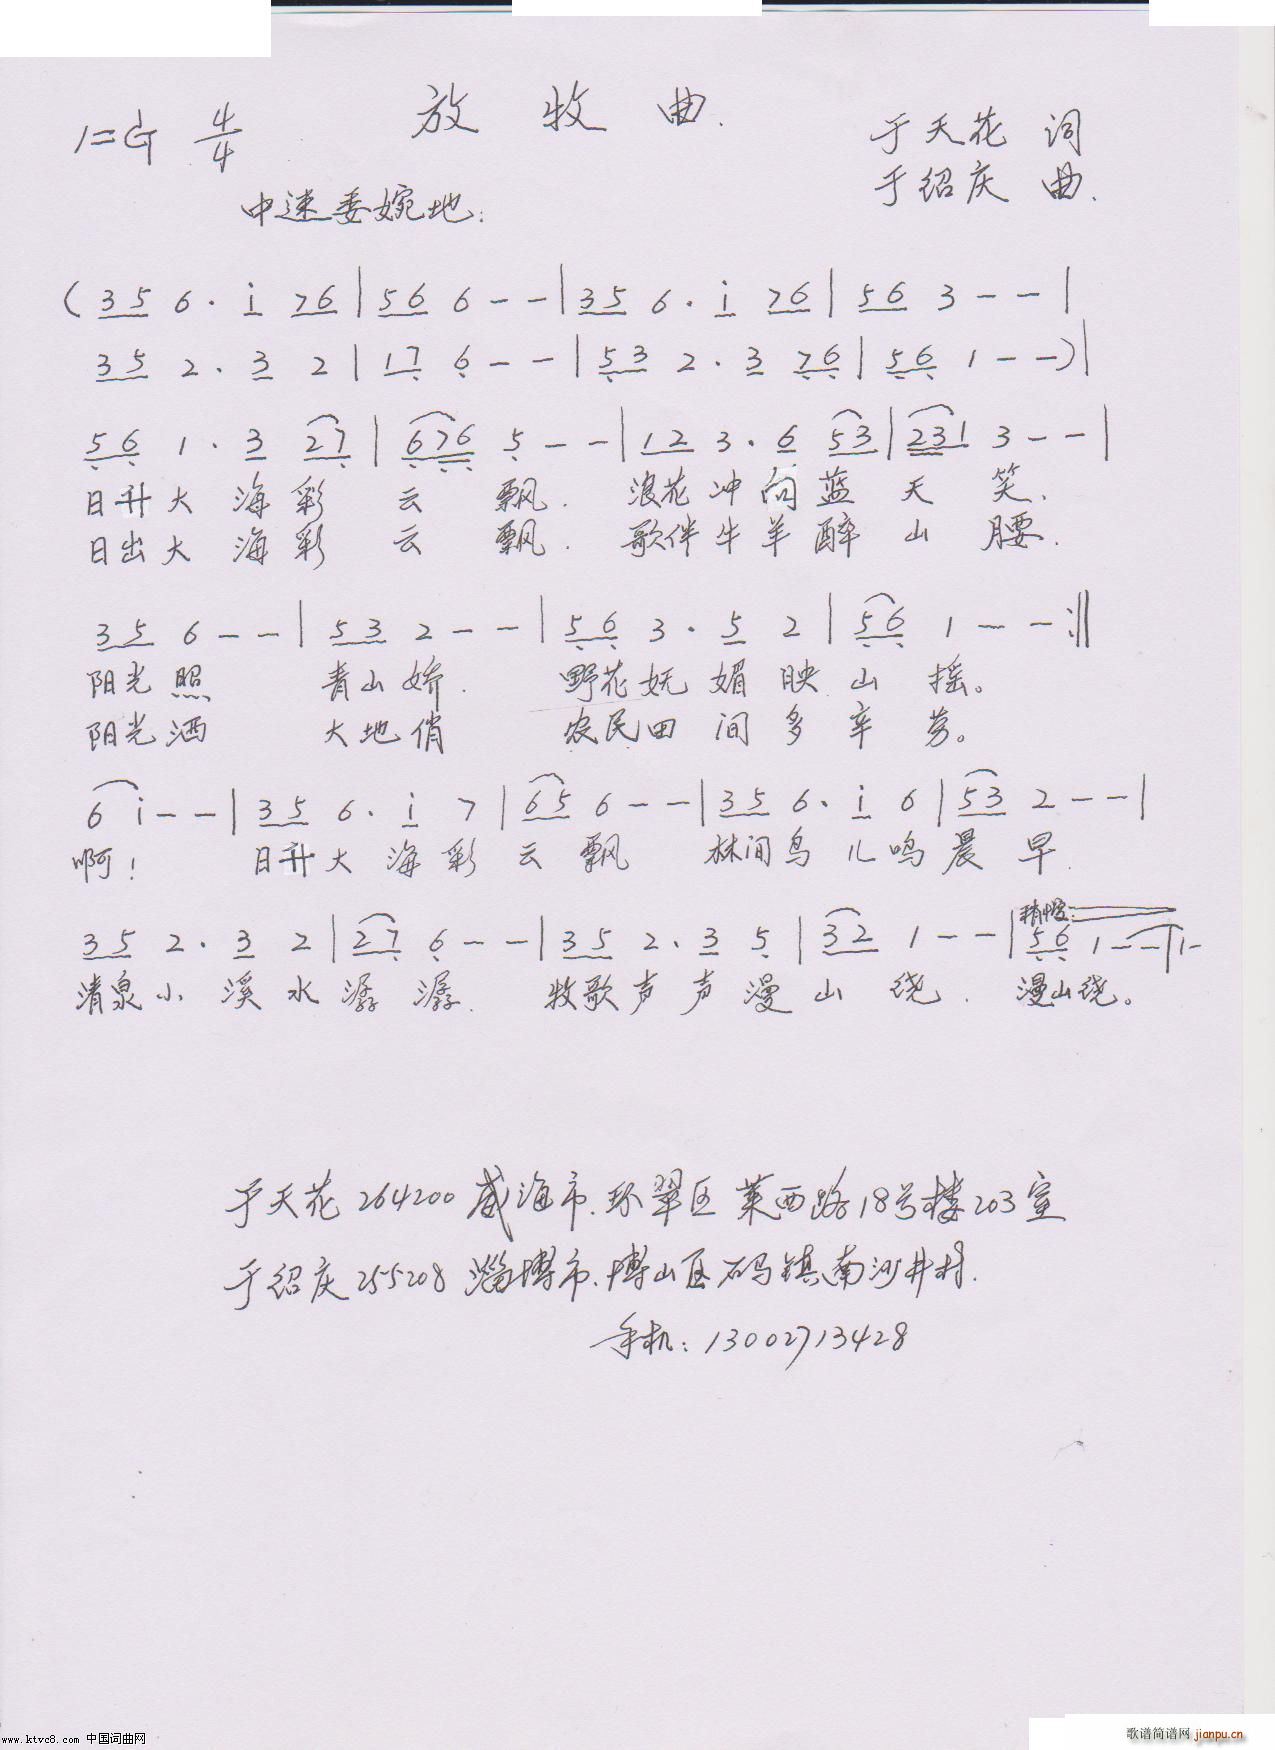 放牧曲.
1=G 4/4
于天花 词
于绍庆 曲.
中速委婉地:
( 3 5 6 · i 7 6 | 5 6 6 - - | 3 5 6 · i 7 6 | 5 6 3 - - |
3 5 2 · 3 2 | 1 7 6 - - | 5 3 2 · 3 7 6 | 5 6 1 - - ) |
5 6 1 · 3 2 7 | 6 7 6 5 - - | 1 2 3 · 6 5 3 | 2 3 1 3 - - |
日升大海彩云飘. 浪花冲向蓝天笑.
日出大海彩云飘. 歌伴牛羊醉山腰.
3 5 6 - - | 5 3 2 - - | 5 6 3 · 5 2 | 5 6 1 - - :‖
阳光照 青山娇. 野花妩媚映山摇。
阳光洒 大地俏 农民田间多辛劳。
6 i - - | 3 5 6 · i 7 | 6 5 6 - - | 3 5 6 · i 6 | 5 3 2 - - |
啊! 日升大海彩云飘 林间鸟儿鸣晨早.
稍慢
3 5 2 · 3 2 | 2 7 6 - - | 3 5 2 . 3 5 | 3 2 1 - - | 5 6 1 - - | 1 -
清泉小溪水潺潺. 牧歌声声漫山绕. 漫山绕。
于天花 264200 威海市.环翠区莱西路18号楼203室
于绍庆 255208 淄博市.博山区石码镇南沙井村.
手机: 13002713428
www.ktvc8.com 中国词曲网
歌谱简谱网 jianpu.cn